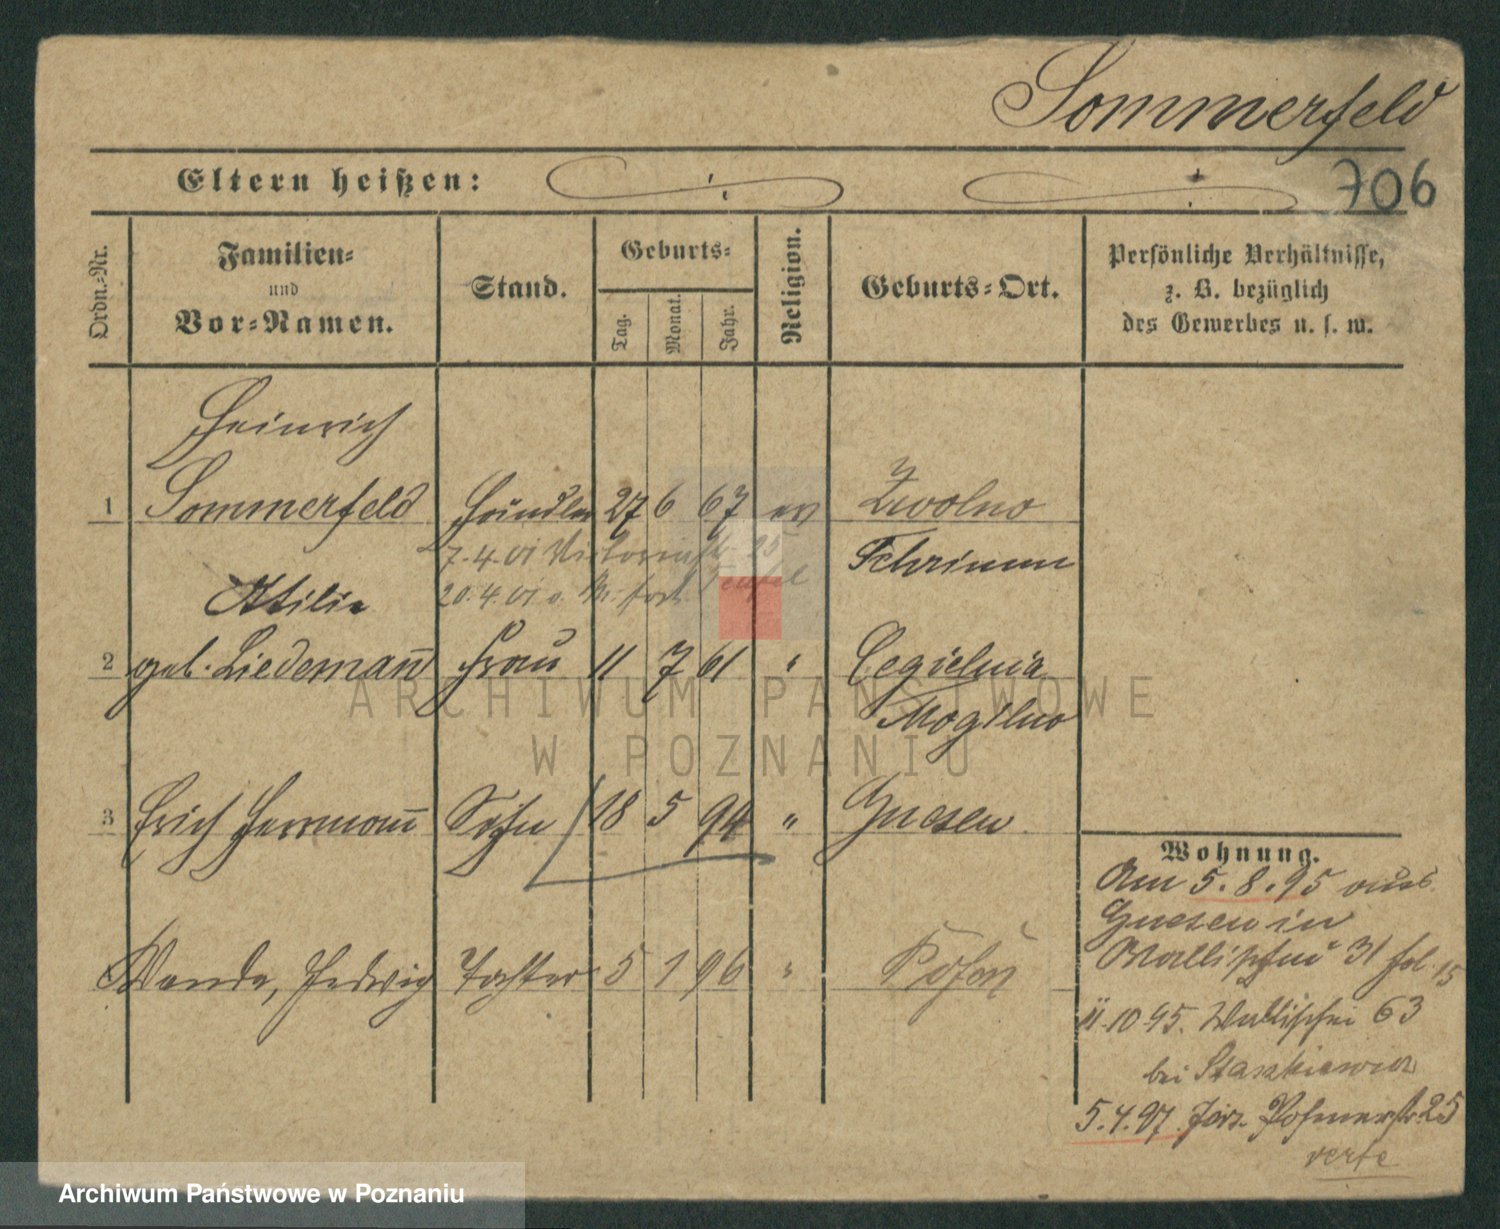 Sommerfeld
706
Eltern heißen:
Ordn.-Nr.
Familien-
und
Vor-Namen.
Stand.
Geburts-
Tag.
Monat.
Jahr.
Religion.
Geburts-Ort.
Persönliche Verhältnisse,
z. B. bezüglich
des Gewerbes u. s. w.
Heinrich
1 Sommerfeld Händler 27 6 67 ev Zwolno
Schrimm
7.4.01 25
20.4.01
Ottilie
2 geb. Liedemann Frau 11 7 61 " Cegielnia
Mogilno
3 Erich Herrmann Sohn 18 5 94 " Gnesen
Wanda, Hedwig Tochter 5 1 96 " Posen
Wohnung.
Am 5.8.95 aus
Gnesen in
Wallischei 31 bei 15
11.10.95. Wallischei 63
bei Staszkiewicz
5.4.97. Jers. Posenerstr. 25
verte
ARCHIWUM PAŃSTWOWE
W POZNANIU
Archiwum Państwowe w Poznaniu